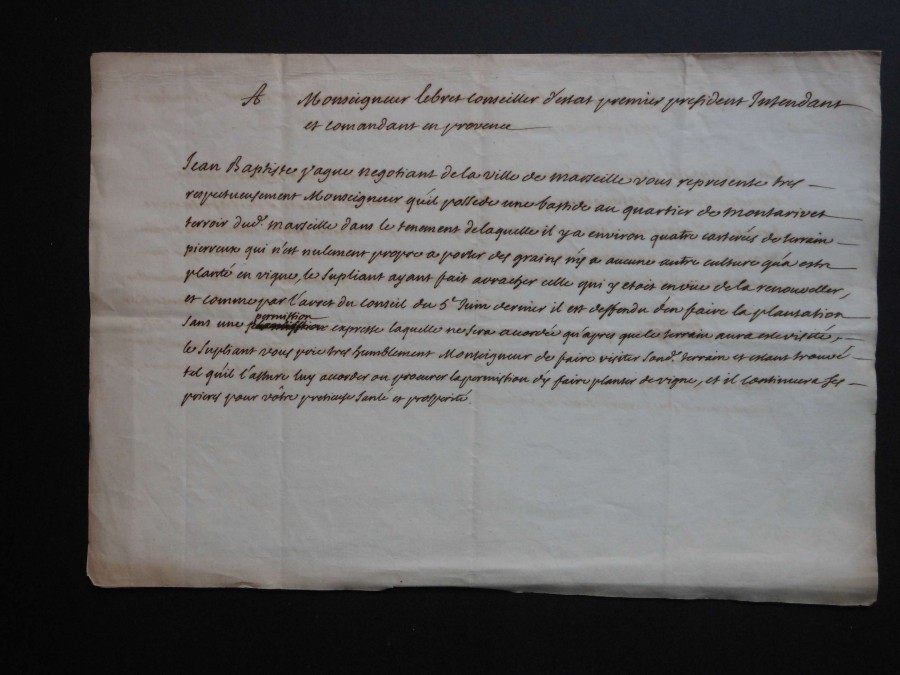 A Monseigneur lebret Conseiller d'estat premier president Intendant
et comandant en provence
Jean Baptiste yague negotiant de la ville de Marseille vous represente tres
respectueusement Monseigneur qu'il possede une bastide au quartier de Montarivet
terroir dud. Marseille dans le tenement de laquelle il y a environ quatre carterés de terrain
pierreux qui n'est nulement propre a porter des grains ny a aucune autre culture qu'a estre
planté en vigne, le supliant ayant fait arracher celle qui y etoit en vüe de la renouveller,
et comme par l'arret du Conseil du 5e Juin dernier il est deffendu d'en faire la plantation
permission
sans une expresse laquelle ne sera accordée qu'apres que le terrain aura esté visité,
le supliant vous prie tres humblement Monseigneur de faire visiter sond. terrain et estant trouvé
tel qu'il l'assure luy accorder ou procurer la permission d'y faire planter de vigne, et il continuera ses
prieres pour vôtre pretieuse santé et prosperité.